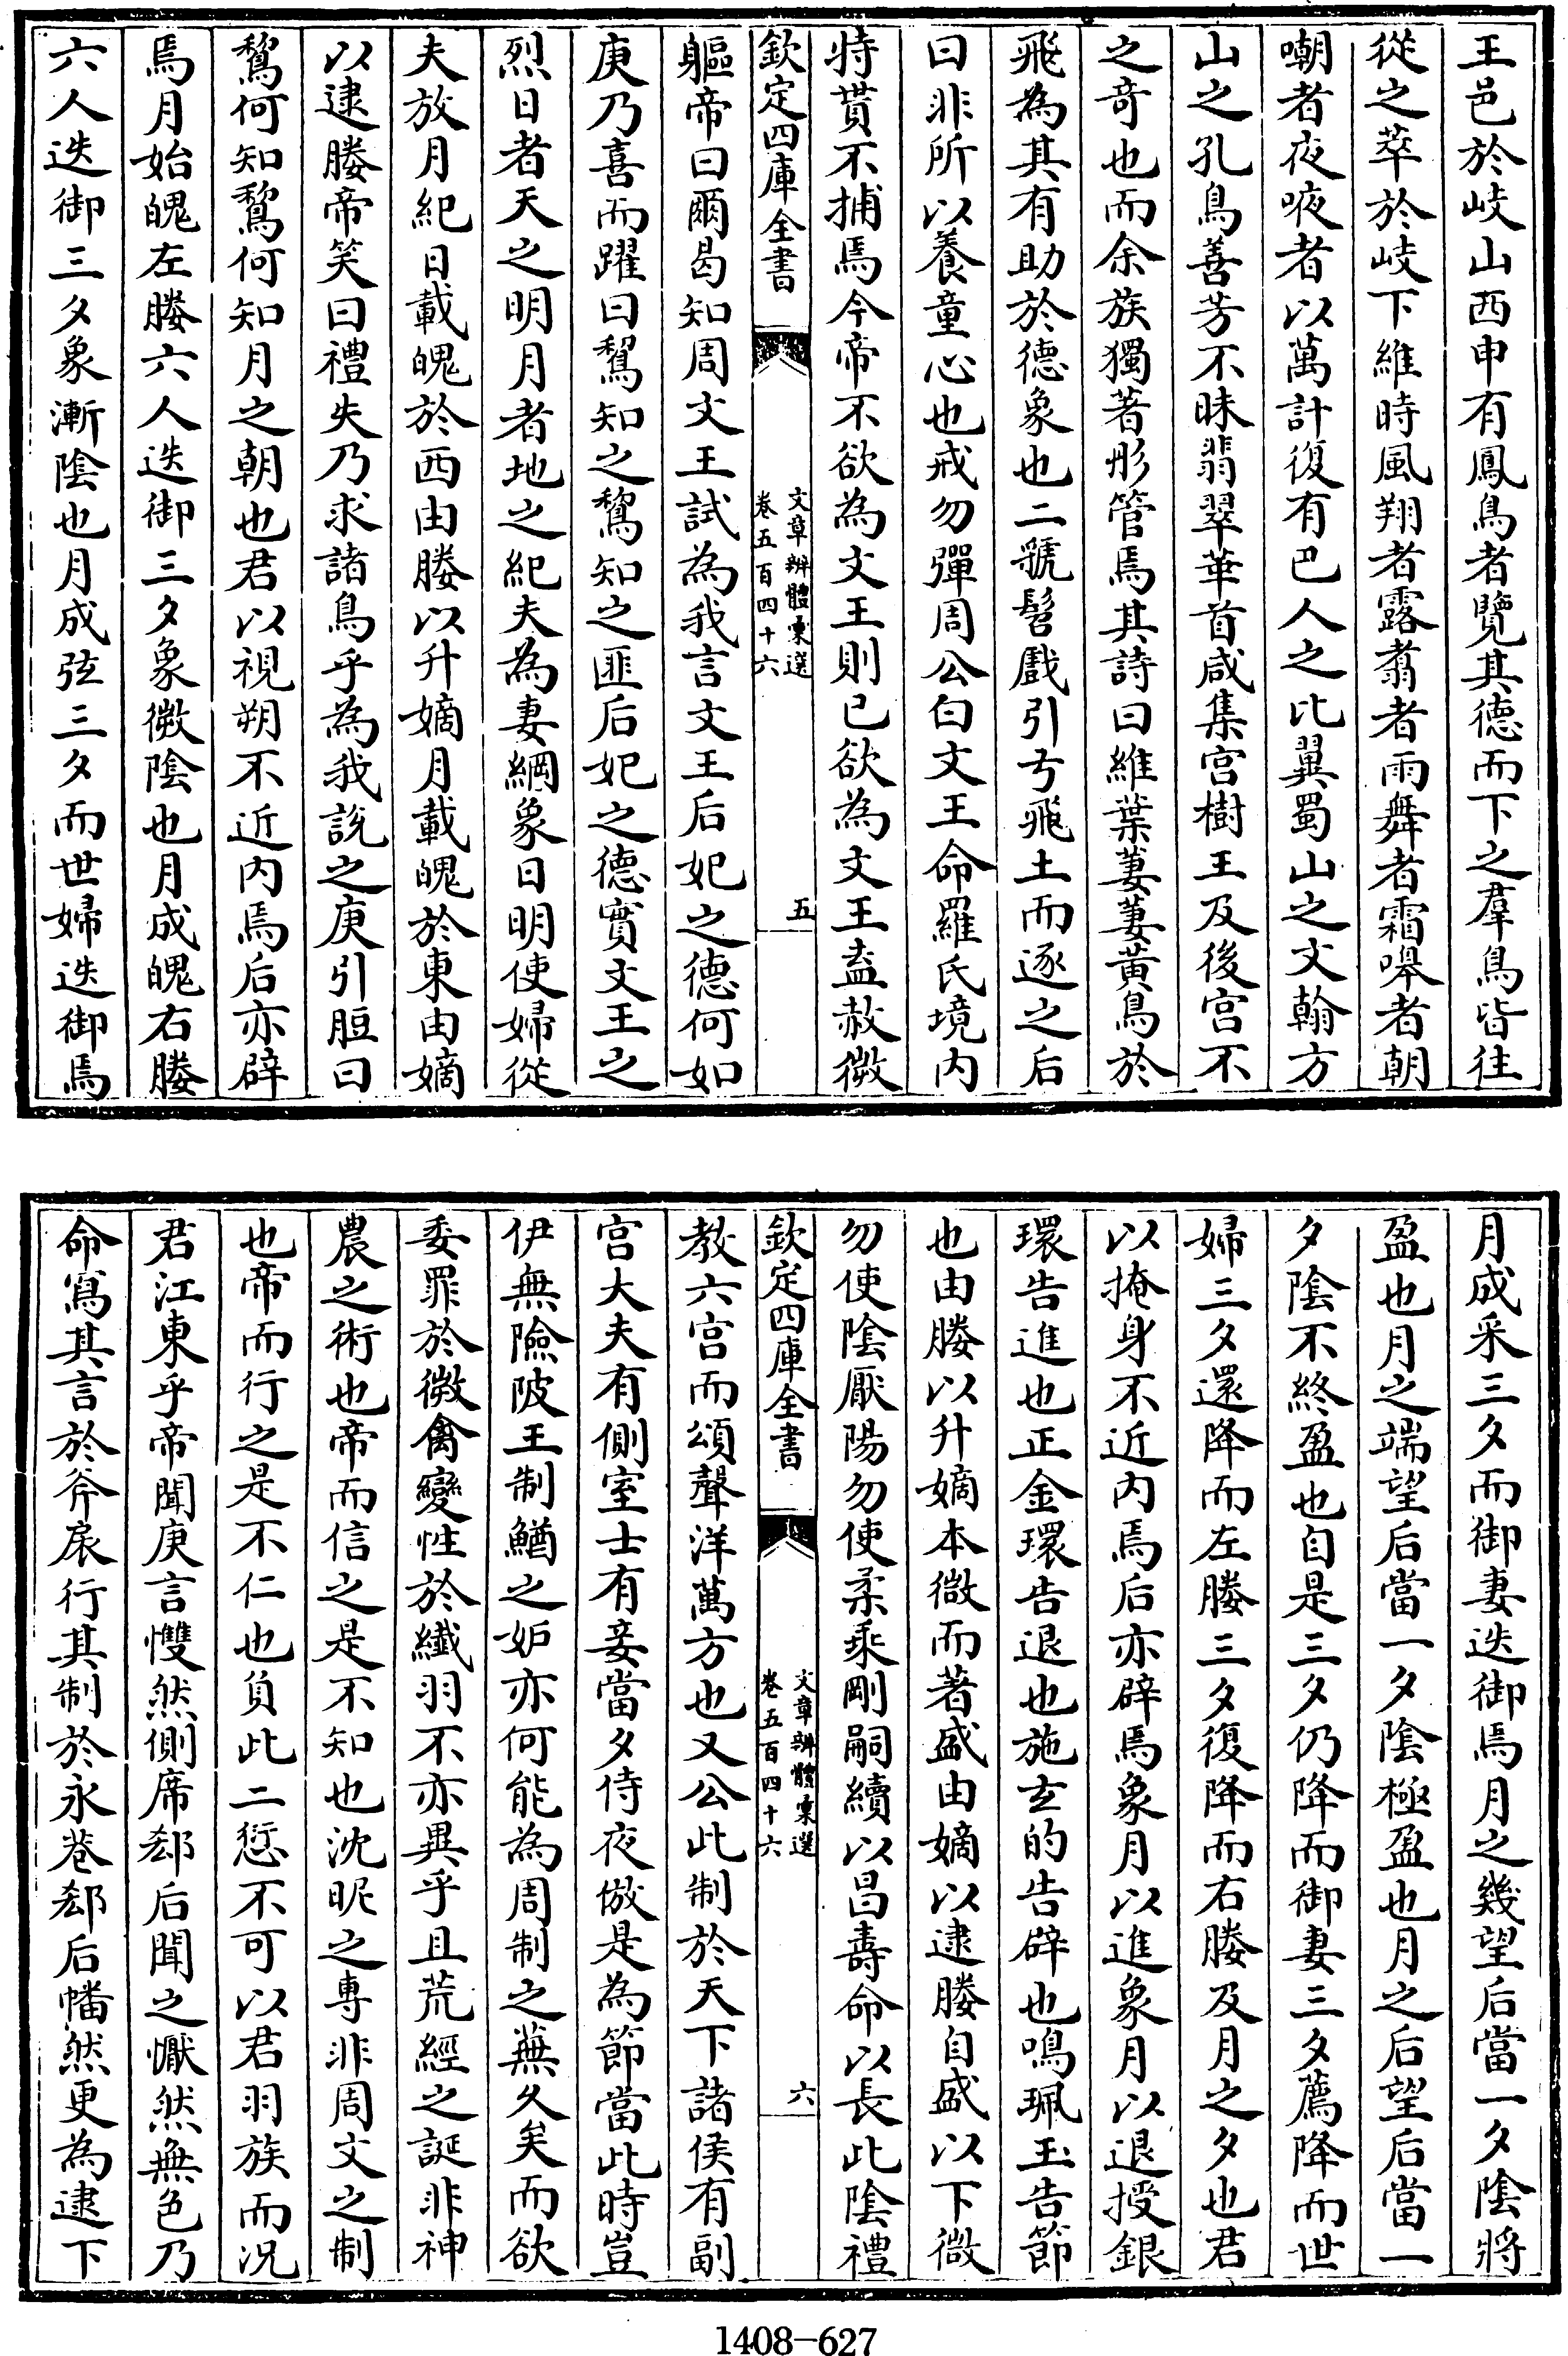 王邑於岐山西申有鳳鳥者覽其德而下之羣鳥皆往
從之萃於岐下維時風翔者露翥者雨舞者霜嘷者朝
嘲者夜㖡者以萬計復有巴人之比翼蜀山之文翰方
山之孔鳥善芳不昧翡翠華首咸集宫樹王及後宫不
之奇也而余族獨著彤管焉其詩曰維葉萋萋黄鳥於
飛為其有助於德象也二虢髫戲引弓飛土而逐之后
曰非所以養童心也戒勿彈周公白文王命羅氏境内
特貰不捕焉今帝不欲為文王則已欲為文王盍赦微
欽定四庫全書
文章辨體彙選
卷五百四十六
五
軀帝曰爾曷知周文王試為我言文王后妃之德何如
庚乃喜而躍曰鶖知之鶖知之匪后妃之德實文王之
烈日者天之明月者地之紀夫為妻綱象日明使婦從
夫放月紀日載魄於西由媵以升嫡月載魄於東由嫡
以逮媵帝笑曰禮失乃求諸鳥乎為我説之庚引脰曰
鶖何知鶖何知月之朝也君以視朔不近内焉后亦辟
焉月始魄左媵六人迭御三夕象微陰也月成魄右媵
六人迭御三夕象漸陰也月成弦三夕而世婦迭御焉
月成采三夕而御妻迭御焉月之幾望后當一夕陰將
盈也月之端望后當一夕陰極盈也月之后望后當一
夕陰不終盈也自是三夕仍降而御妻三夕薦降而世
婦三夕還降而左媵三夕復降而右媵及月之夕也君
以掩身不近内焉后亦辟焉象月以進象月以退授銀
環告進也正金環告退也施玄的告辟也鳴珮玉告節
也由媵以升嫡本微而著盛由嫡以逮媵自盛以下微
勿使陰厭陽勿使柔乘剛嗣續以昌壽命以長此陰禮
欽定四庫全書
文章辨體彙選
卷五百四十六
六
教六宫而頌聲洋萬方也又公此制於天下諸侯有副
宫大夫有側室士有妾當夕侍夜倣是為節當此時豈
伊無險陂王制鰌之妒亦何能為周制之蕪久矣而欲
委罪於微禽變性於纖羽不亦異乎且荒經之誕非神
農之術也帝而信之是不知也沈昵之專非周文之制
也帝而行之是不仁也負此二愆不可以君羽族而况
君江東乎帝聞庚言㦬然側席郄后聞之懨然無色乃
命寫其言於斧扆行其制於永巷郄后幡然更為逮下
1408-627